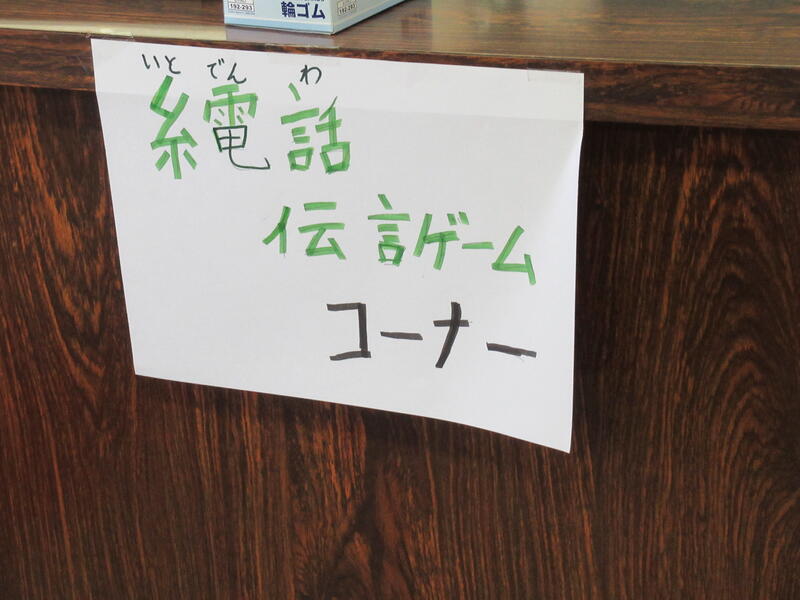 192-293
輪ゴム
192-293
いと でん わ
糸電話
伝言ゲーム
コーナー